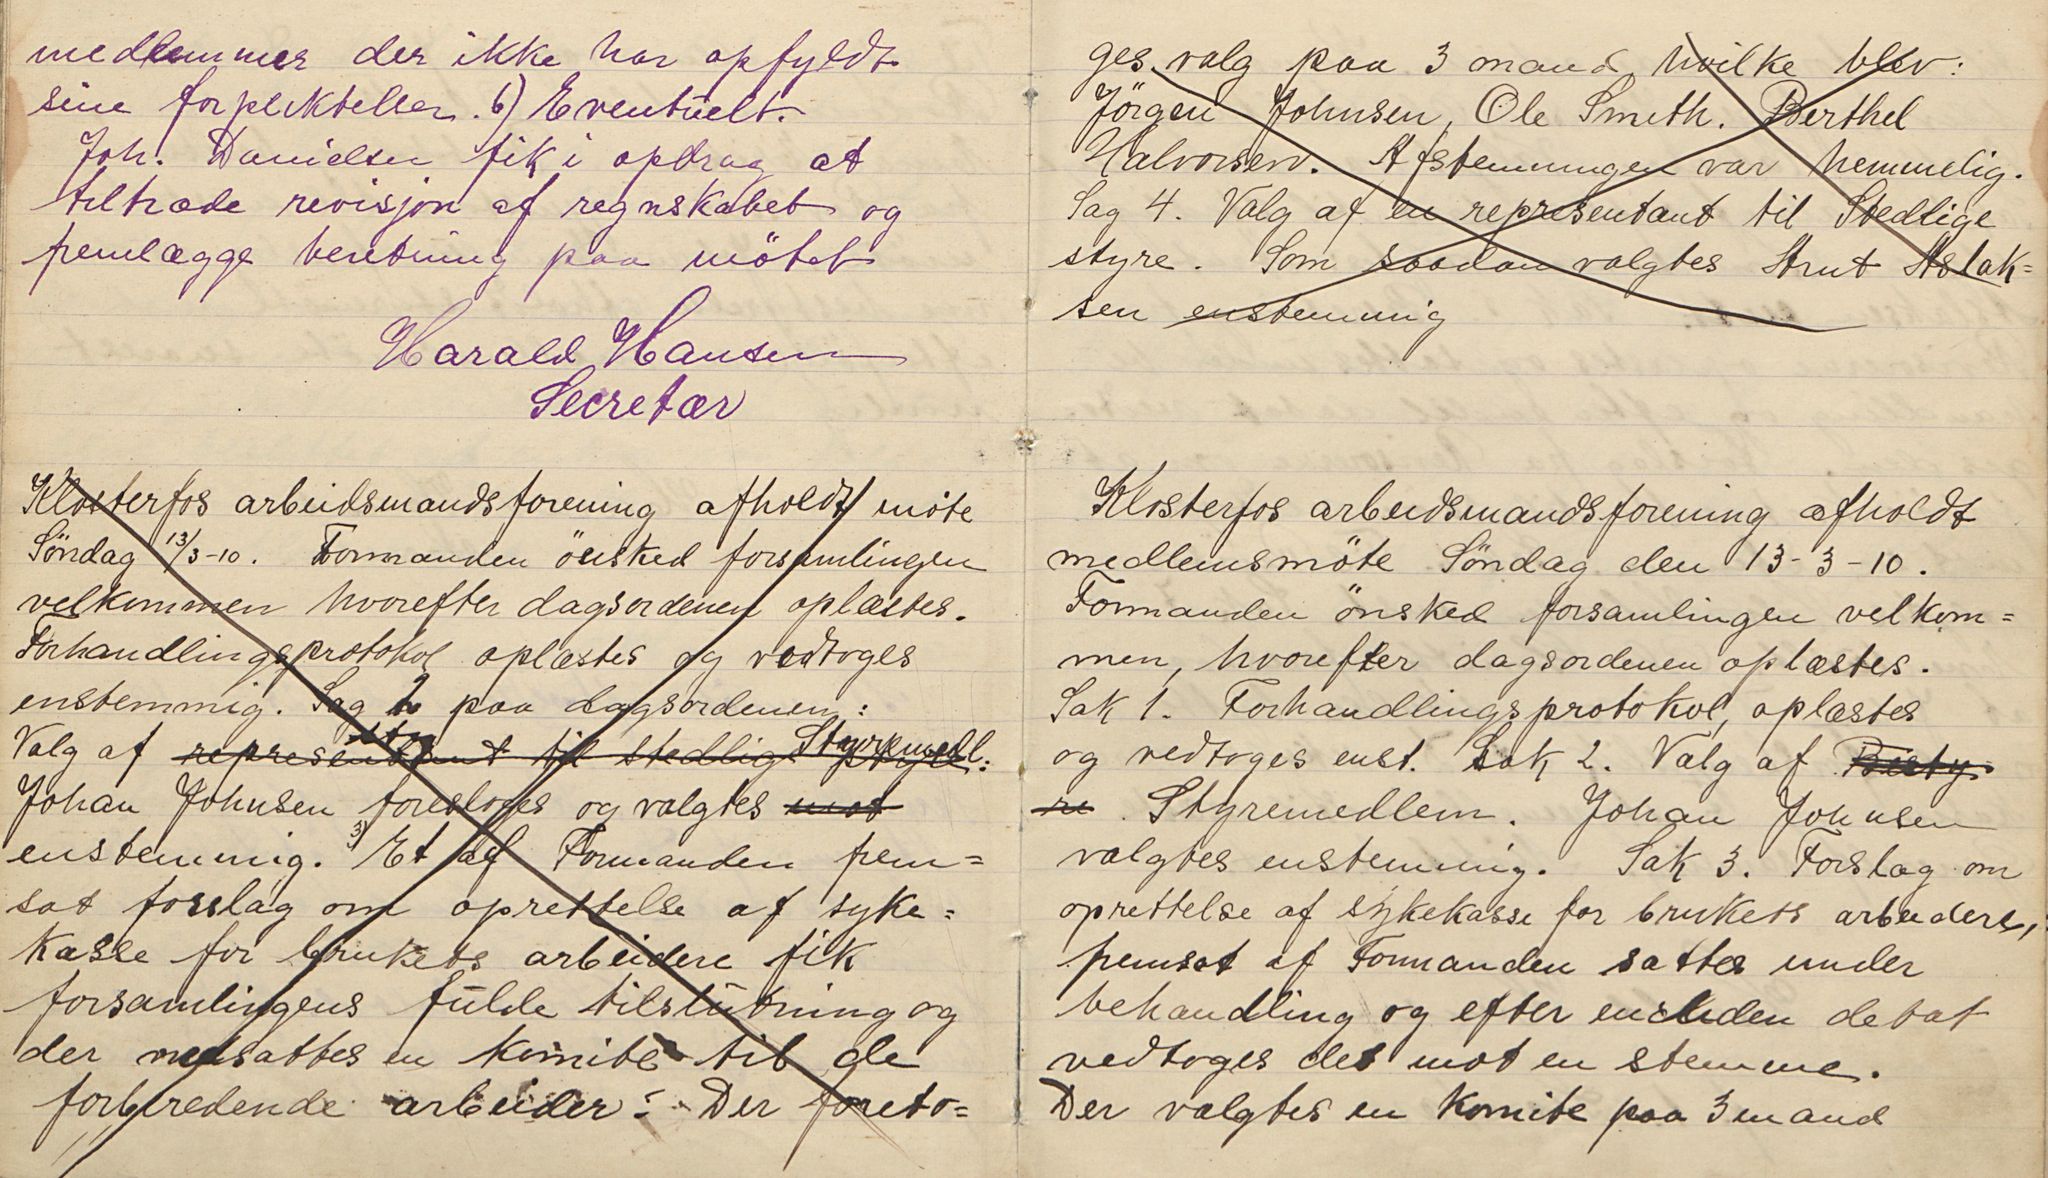 medlemmer der ikke har opfyldt
sine forpliktelser. 6) Eventuelt.
Joh. Danielsen fik i opdrag at
tiltræde revisjon af regnskabet og
fremlægge beretning paa mötet
Harald Hansen
Secretær
Klosterfos arbeidsmandsforening afholdt möte
Söndag 13/3-10. Formanden önsked forsamlingen
velkommen hvorefter dagsordenen oplæstes.
Forhandlingsprotokol oplæstes og vedtoges
enstemmig. Sag 2 paa dagsordenen:
Valg af representant til stedlig Styremedl.:
Johan Johnsen foresloges og valgtes mot
enstemmig. 3) Et af Formanden frem=
sat forslag om oprettelse af syke=
kasse for brukets arbeidere fik
forsamlingens fulde tilslutning og
der nedsattes en komite til de
forberedende arbeider. Der foreto=
ges valg paa 3 mand hvilke blev:
Jörgen Johnsen, Ole Smeth. Berthel
Halvorsen. Afstemningen var hemmelig.
Sag 4. Valg af en representant til Stedlige
styre. Som saadan valgtes Knut Aslak=
sen enstemmig
Klosterfos arbeidsmandsforening afholdt
medlemsmöte Söndag den 13-3-10.
Formanden önsked forsamlingen velkom=
men, hvorefter dagsordenen oplæstes.
Sak 1. Forhandlingsprotokol, oplæstes
og vedtoges enst. Sak 2. Valg af Besty-
re. Styremedlem. Johan Johnsen
valgtes enstemmig. Sak 3. Forslag om
oprettelse af sykekasse for brukets arbeidere,
fremsat af Formanden sattes under
behandling og efter endel debat
vedtoges det mot en stemme.
Der valgtes en komite paa 3 mand